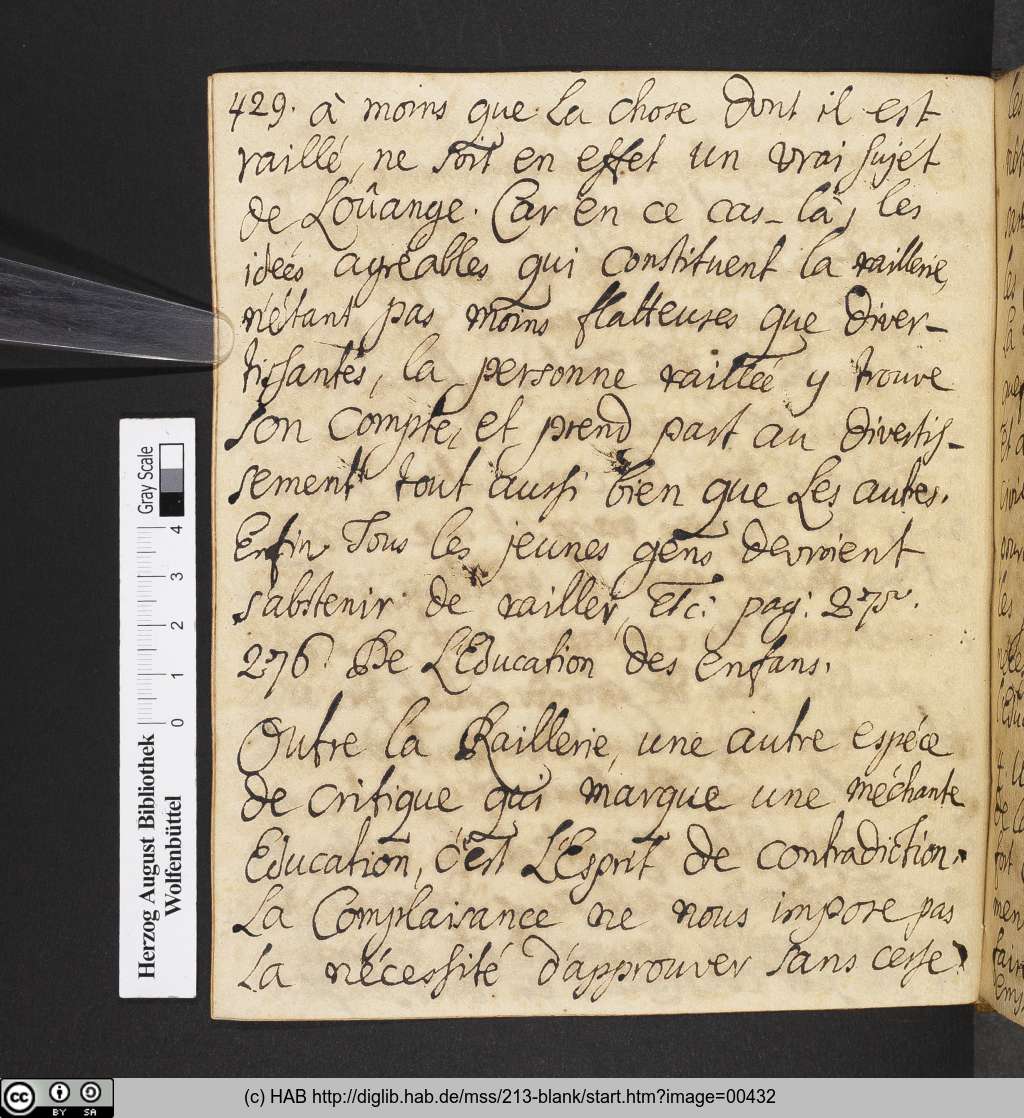 429. à moins que La chose Dont il est
raillé, ne soit en effét un vrai sujét
de Loûange. Car en ce cas-là, les
idées agréables qui constituent la raillerie,
n'étant pas moins flatteuses que diver-
tissantes, la personne raillée y trouve
son compte, et prend part au divertis-
sement tout aussi bien que Les autres.
Enfin Tous les jeunes gens devroient
s'abstenir de railler, Etc: pag: 275.
276. De L'Education des enfans.
Outre la Raillerie, une autre espéce
de critique qui marque une méchante
Education, c'est L'Esprit de contradiction.
La Complaisance ne nous impose pas
La nécessité d'approuver sans cesse
Herzog August Bibliothek
Wolfenbüttel
Gray Scale
0 1 2 3 4
CC BY SA
(c) HAB http://diglib.hab.de/mss/213-blank/start.htm?image=00432